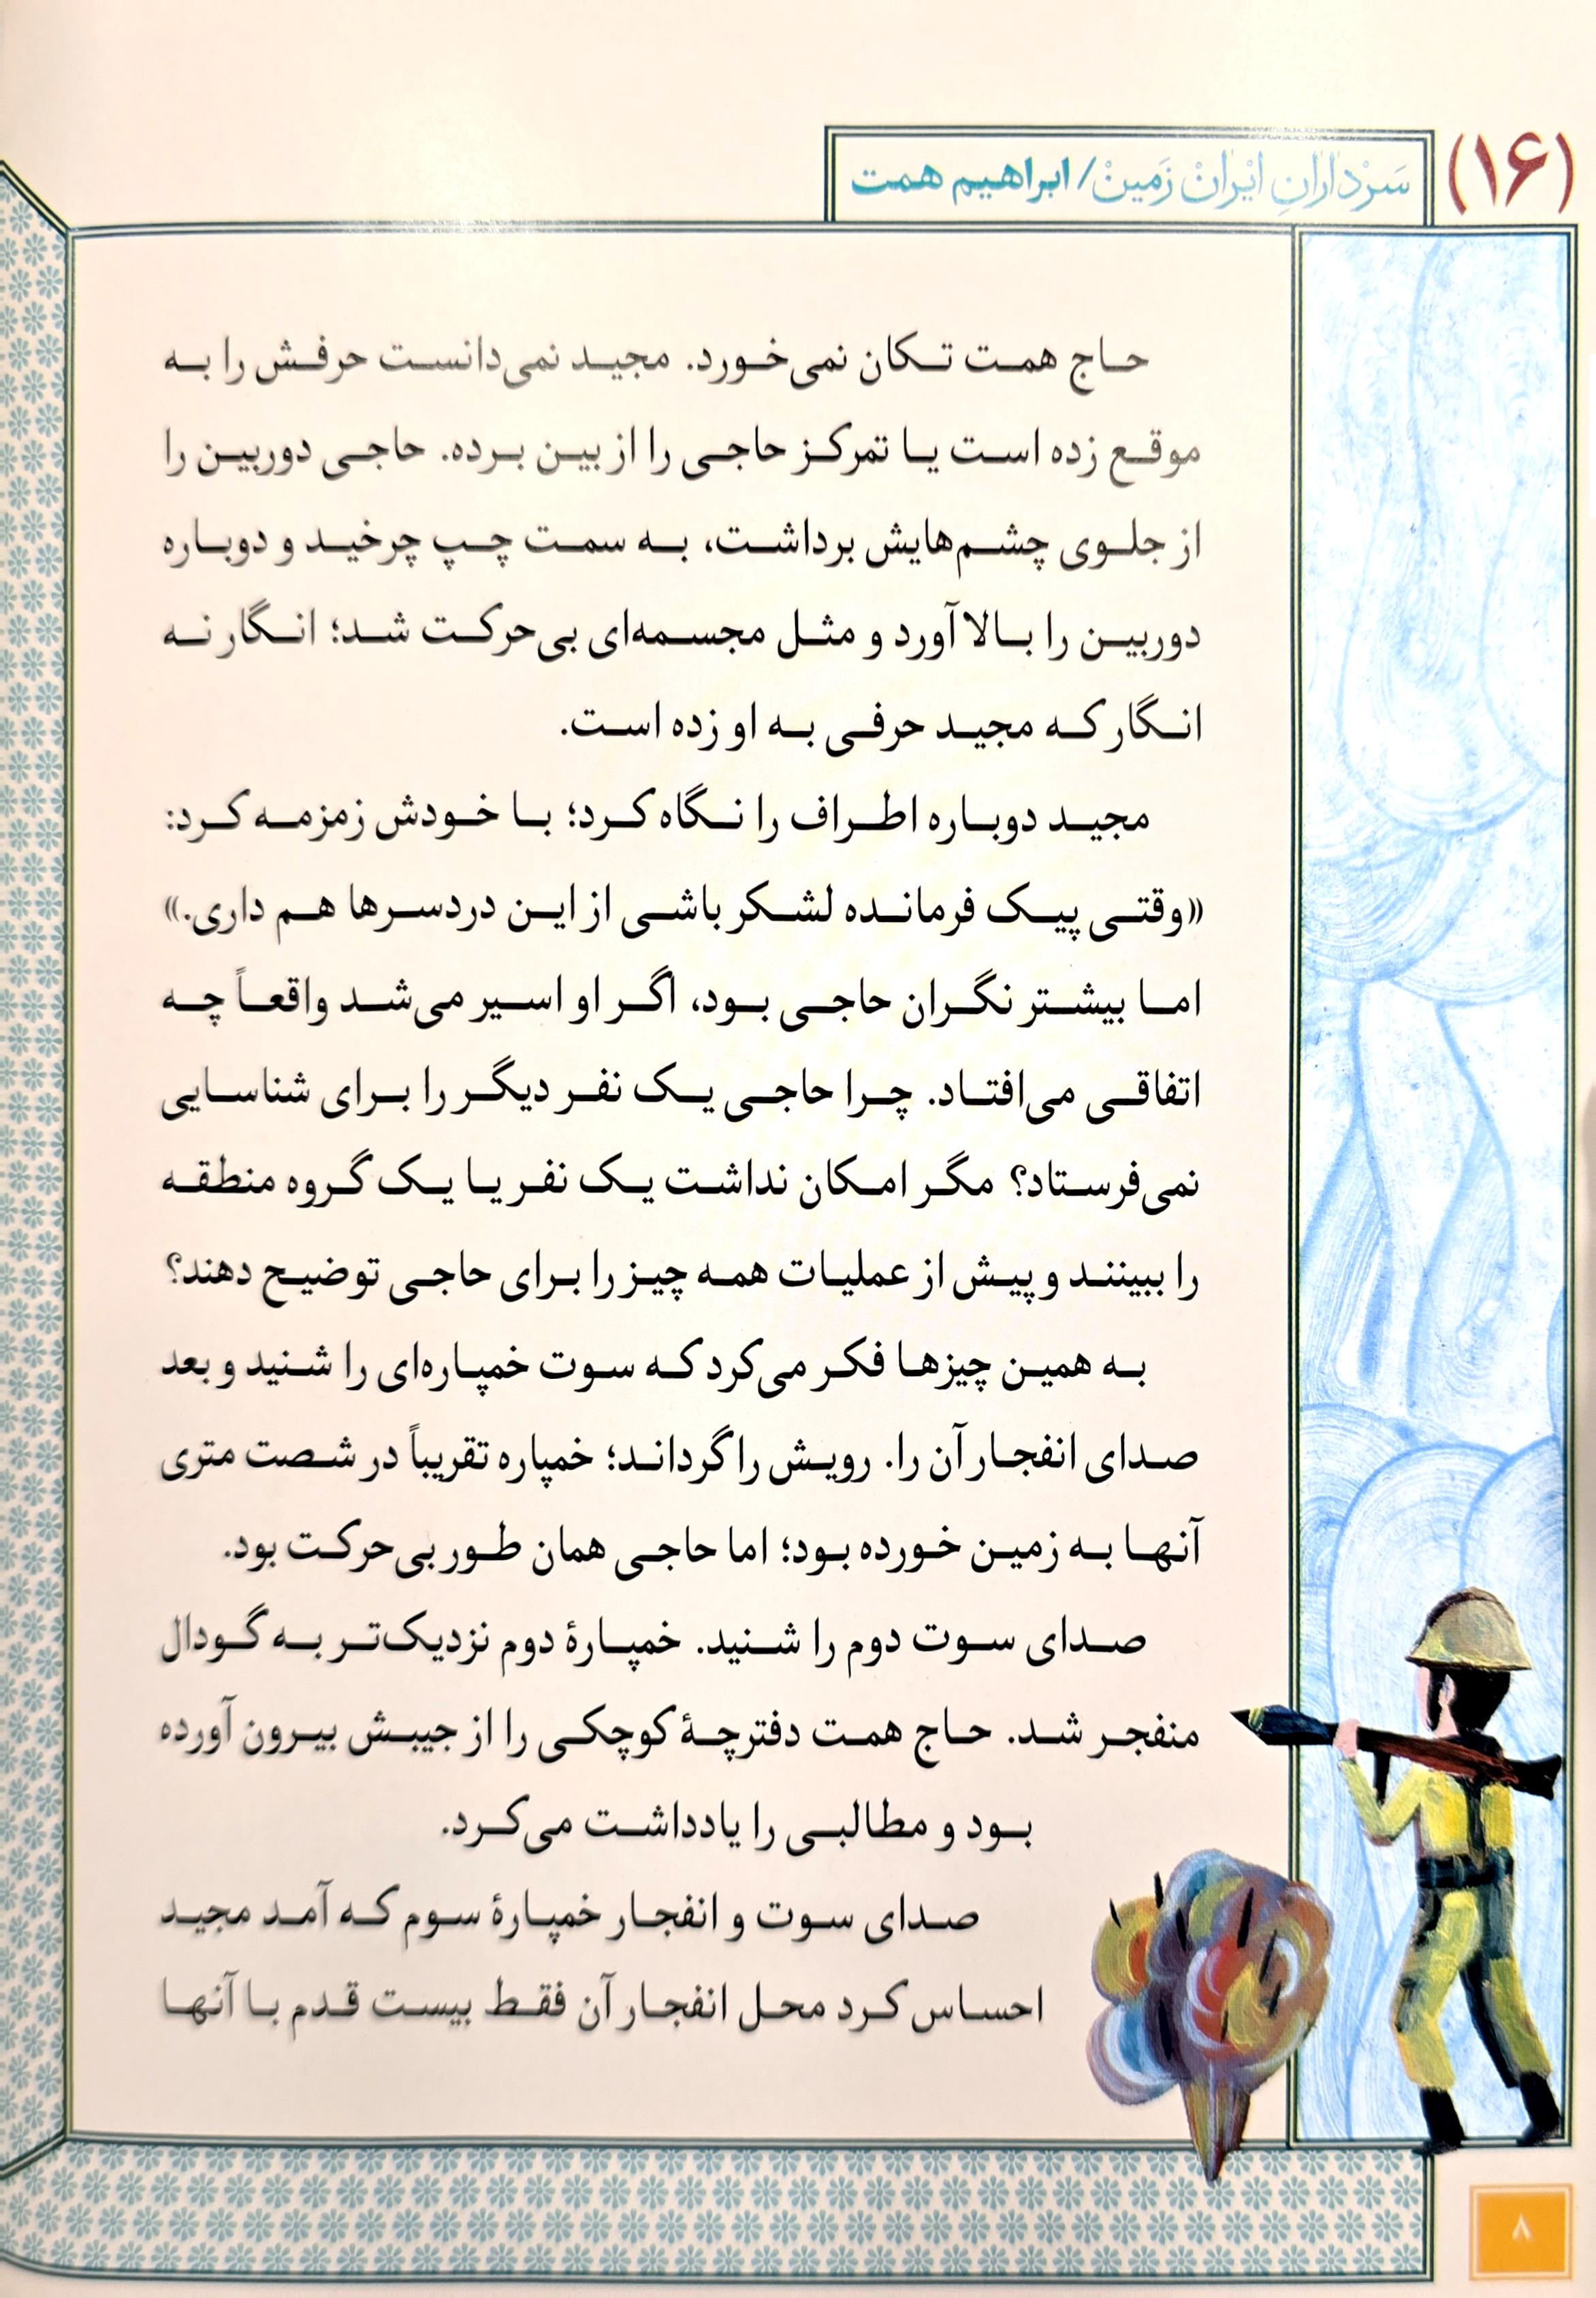 (۱۶)
سَرْدارانِ ایْرانْ زَمینْ/ ابراهیم همت
حاج همت تکان نمی‌خورد. مجید نمی‌دانست حرفش را به
موقع زده است یا تمرکز حاجی را از بین برده. حاجی دوربین را
از جلوی چشم‌هایش برداشت، به سمت چپ چرخید و دوباره
دوربین را بالا آورد و مثل مجسمه‌ای بی‌حرکت شد؛ انگار نه
انگار که مجید حرفی به او زده است.
مجید دوباره اطراف را نگاه کرد؛ با خودش زمزمه کرد:
«وقتی پیک فرمانده لشکر باشی از این دردسرها هم داری.»
اما بیشتر نگران حاجی بود، اگر او اسیر می‌شد واقعاً چه
اتفاقی می‌افتاد. چرا حاجی یک نفر دیگر را برای شناسایی
نمی‌فرستاد؟ مگر امکان نداشت یک نفر یا یک گروه منطقه
را ببینند و پیش از عملیات همه چیز را برای حاجی توضیح دهند؟
به همین چیزها فکر می‌کرد که سوت خمپاره‌ای را شنید و بعد
صدای انفجار آن را. رویش را گرداند؛ خمپاره تقریباً در شصت متری
آنها به زمین خورده بود؛ اما حاجی همان طور بی‌حرکت بود.
صدای سوت دوم را شنید. خمپارهٔ دوم نزدیک‌تر به گودال
منفجر شد. حاج همت دفترچهٔ کوچکی را از جیبش بیرون آورده
بود و مطالبی را یادداشت می‌کرد.
صدای سوت و انفجار خمپارهٔ سوم که آمد مجید
احساس کرد محل انفجار آن فقط بیست قدم با آنها
۸